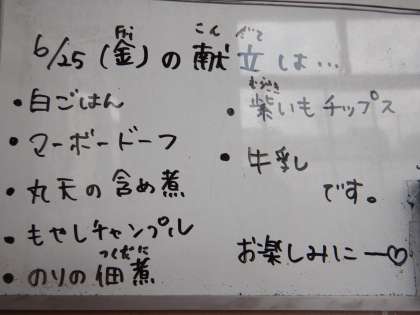 6/25(金)の献立は…
・白ごはん
・マーボードーフ
・丸天の含め煮
・もやしチャンプル
・のりの佃煮
・紫いもチップス
・牛乳
です。
お楽しみにー♡